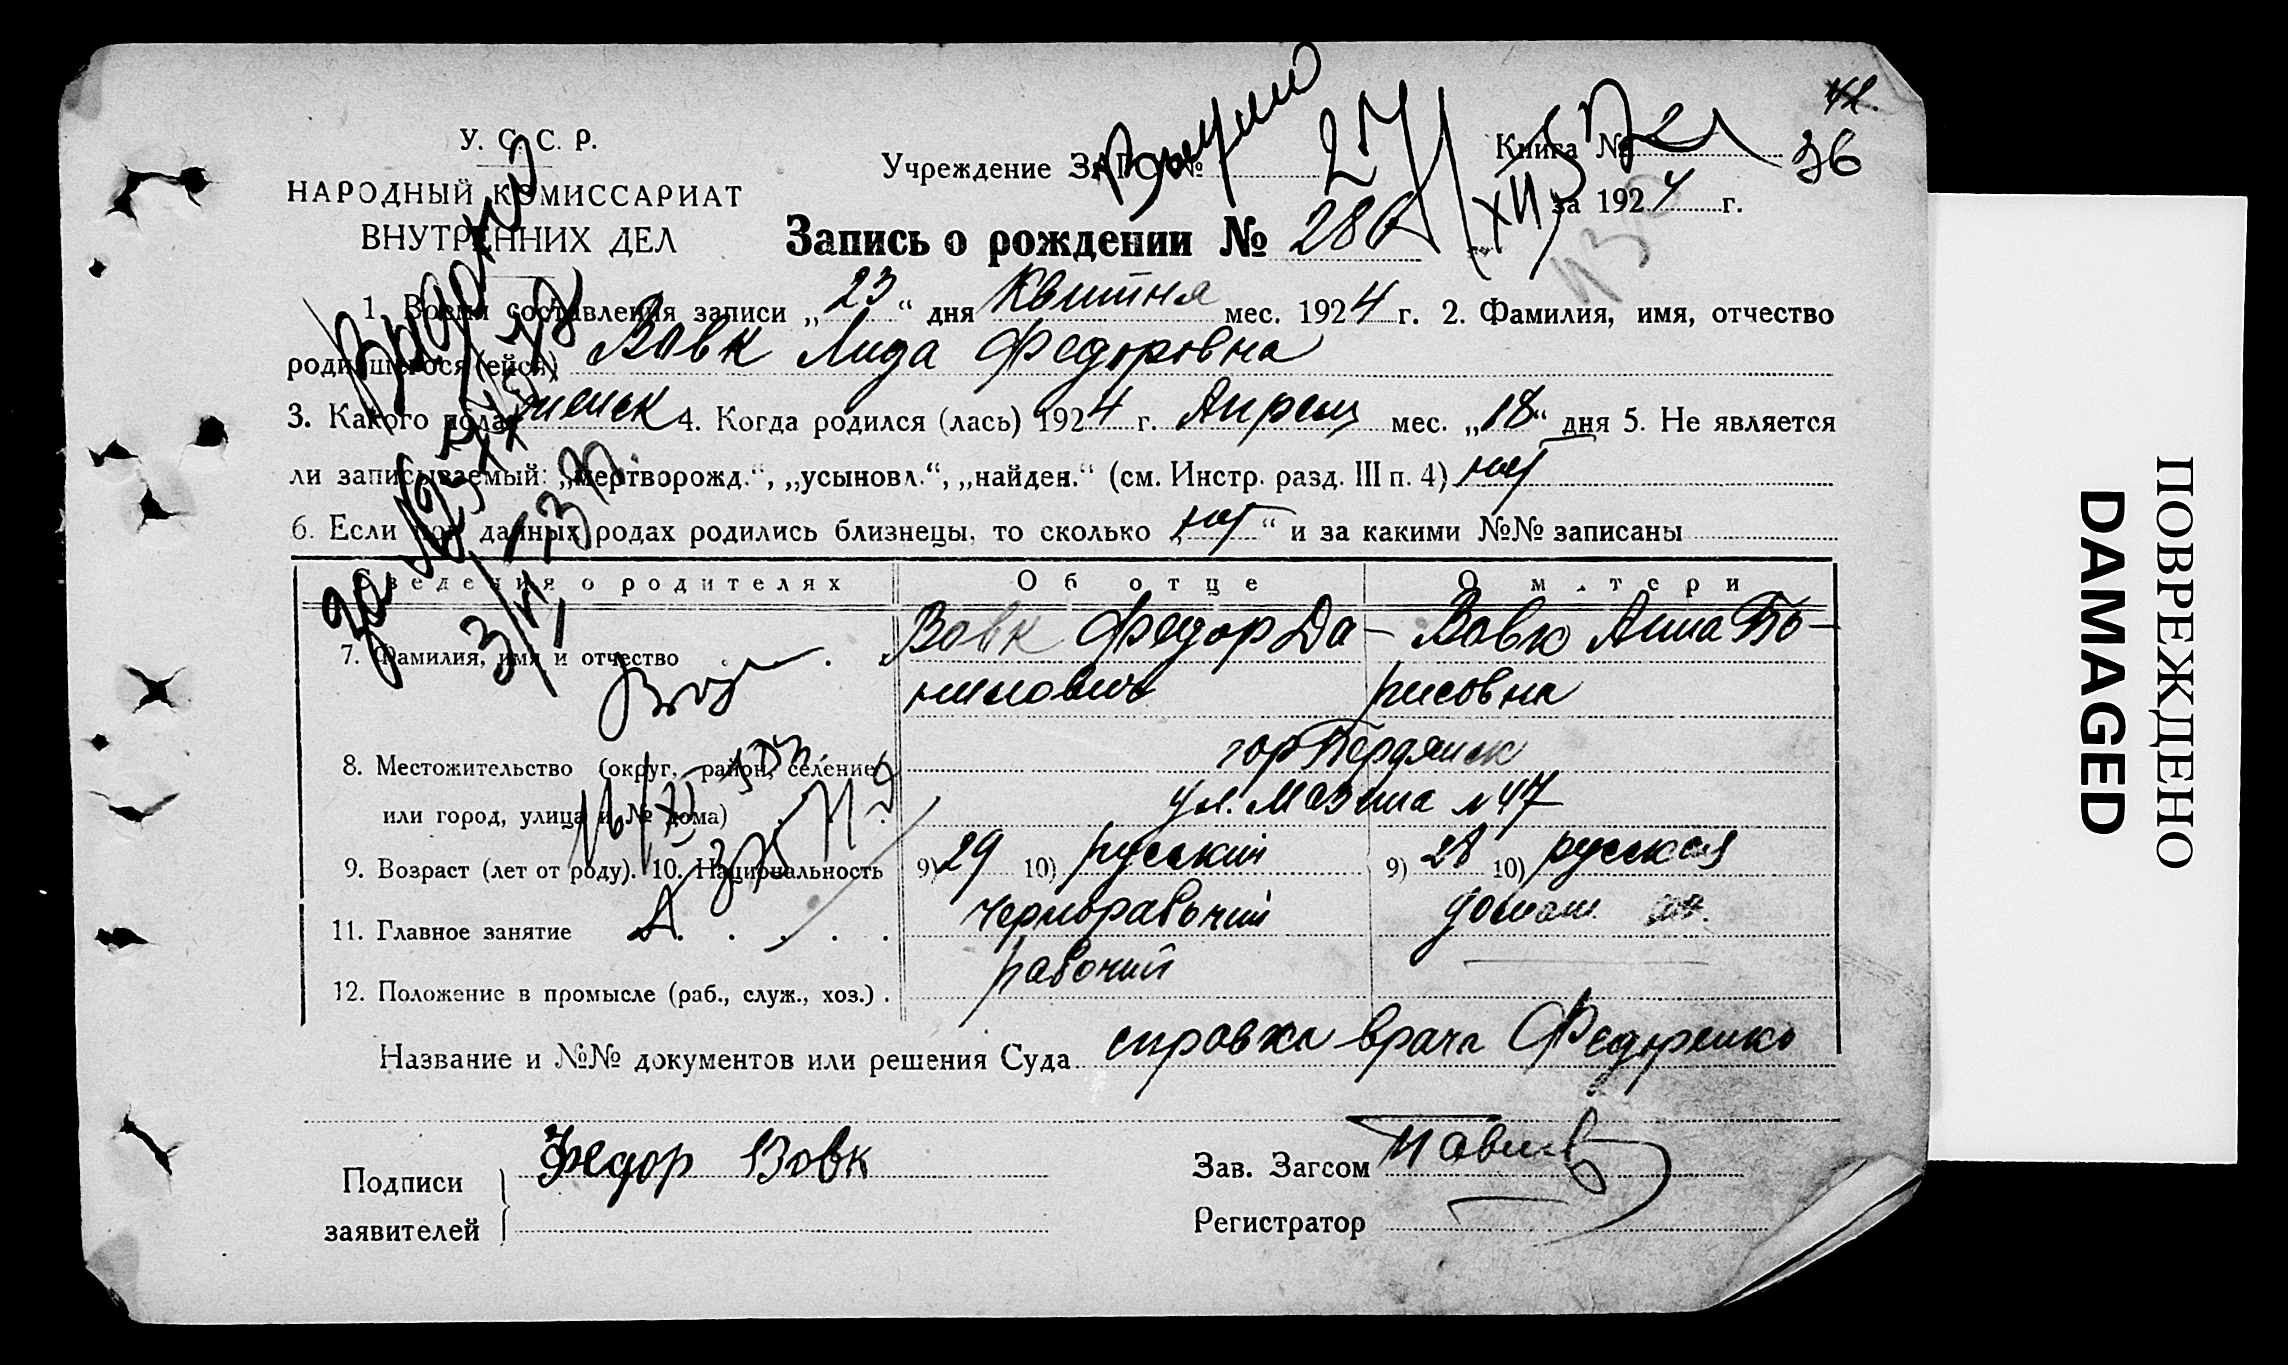 42.
36
У. С. С. Р.
НАРОДНЫЙ КОМИССАРИАТ
ВНУТРЕННИХ ДЕЛ
Учреждение ЗАГС №
Книга № 2
за 1924 г.
Запись о рождении № 280
1. Время составления записи „23“ дня Квитня мес. 1924 г. 2. Фамилия, имя, отчество
родившегося (ейся) Вовк Лида Федоровна
3. Какого пола женск 4. Когда родился (лась) 1924 г. Апрель мес. „18“ дня 5. Не является
ли записываемый: „мертворожд.“, „усыновл.“, „найден.“ (см. Инстр. разд. III п. 4) нет
6. Если при данных родах родились близнецы, то сколько „нет“ и за какими №№ записаны
Сведения о родителях Об отце О матери
7. Фамилия, имя и отчество Вовк Федор Да- Вовк Анна Бо-
нилович рисовна
8. Местожительство (округ, район, селение гор Бердянск
или город, улица и № дома) ул. Мазина № 47
9. Возраст (лет от роду). 10. Национальность 9) 29 10) русский 9) 28 10) русская
11. Главное занятие чернорабочий домаш. хоз.
12. Положение в промысле (раб., служ., хоз.) . рабочий
Название и №№ документов или решения Суда справка врача Федоренко
Подписи Федор Вовк
заявителей
Зав. Загсом
Регистратор
ПОВРЕЖДЕНО
DAMAGED